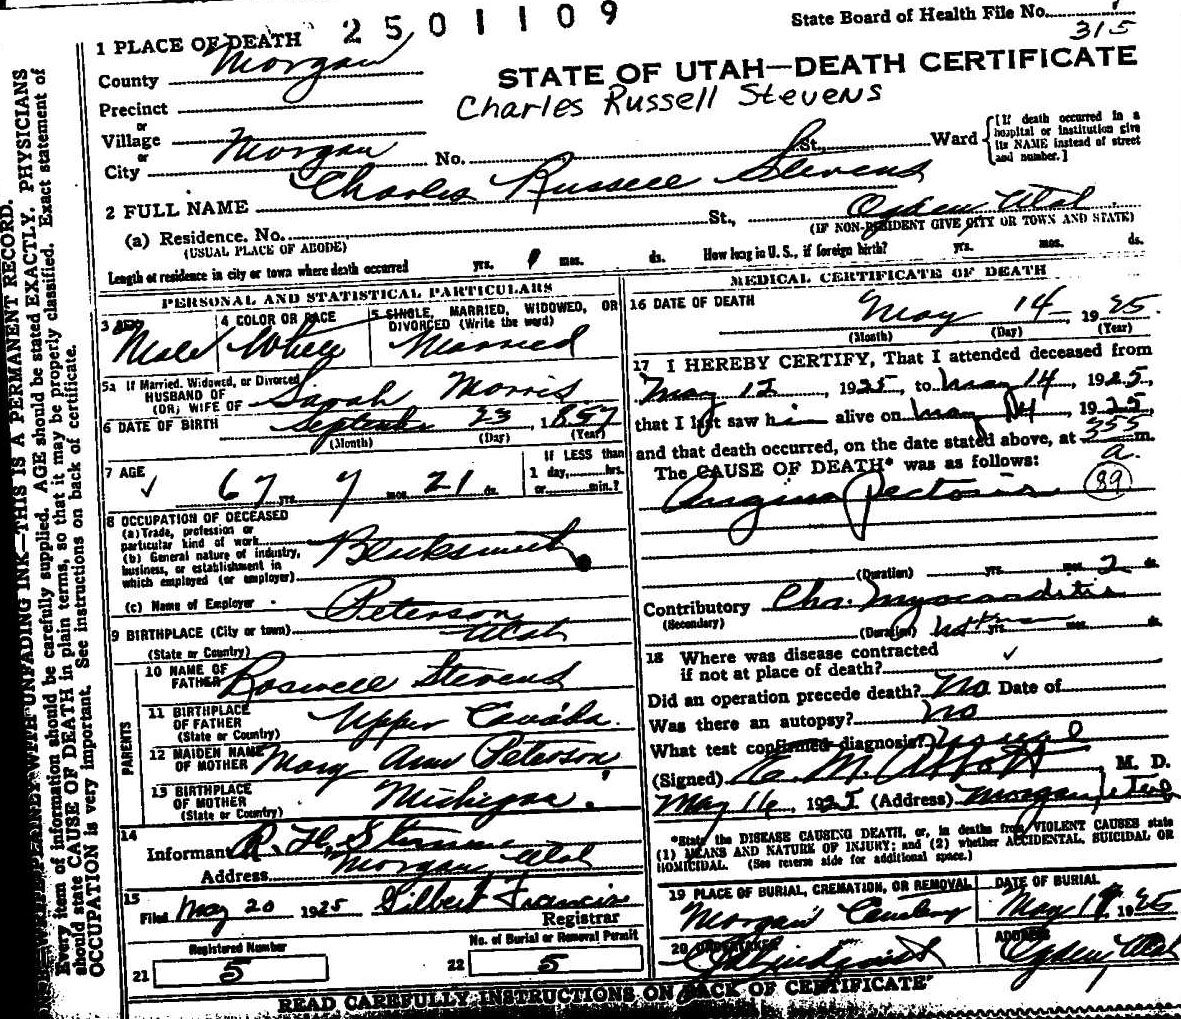 2501109
State Board of Health File No.
315
1 PLACE OF DEATH
County Morgan
STATE OF UTAH—DEATH CERTIFICATE
Charles Russell Stevens
Precinct
or
Village
or
City Morgan No. St., Ward
[If death occurred in a hospital or institution give its NAME instead of street and number.]
2 FULL NAME Charles Russell Stevens
(a) Residence. No. St., Ogden Utah
(USUAL PLACE OF ABODE) (IF NON-RESIDENT GIVE CITY OR TOWN AND STATE)
Length of residence in city or town where death occurred yrs. mos. ds. How long in U. S., if foreign birth? yrs. mos. ds.
PERSONAL AND STATISTICAL PARTICULARS
3 SEX Male
4 COLOR OR RACE White
5 SINGLE, MARRIED, WIDOWED, OR DIVORCED (Write the word) Married
5a If Married, Widowed, or Divorced
HUSBAND OF
(OR) WIFE OF Sarah Morris
6 DATE OF BIRTH September 23, 1857
(Month) (Day) (Year)
7 AGE 67 yrs. 7 mos. 21 ds.
If LESS than
1 day, hrs.
or min.?
8 OCCUPATION OF DECEASED
(a) Trade, profession or
particular kind of work Blacksmith
(b) General nature of industry,
business, or establishment in
which employed (or employer)
(c) Name of Employer
9 BIRTHPLACE (City or town) Peterson
(State or Country) Utah
PARENTS
10 NAME OF FATHER Roswell Stevens
11 BIRTHPLACE OF FATHER (State or Country) Upper Canada.
12 MAIDEN NAME OF MOTHER Mary Ann Peterson
13 BIRTHPLACE OF MOTHER (State or Country) Michigan.
14
Informant R. H. Stevens
Address Morgan Utah
15
Filed May 20 1925 Gilbert Francis
Registrar
Registered Number
21 5
No. of Burial or Removal Permit
22 5
MEDICAL CERTIFICATE OF DEATH
16 DATE OF DEATH May 14 1925
(Month) (Day) (Year)
17 I HEREBY CERTIFY, That I attended deceased from
May 12, 1925, to May 14, 1925,
that I last saw him alive on May 14, 1925,
and that death occurred, on the date stated above, at 355 a. m.
The CAUSE OF DEATH* was as follows:
Angina Pectoris 89
(Duration) yrs. mos. 2 ds.
Contributory Chr. Myocarditis
(Secondary) (Duration) yrs. mos. ds.
18 Where was disease contracted
if not at place of death?
Did an operation precede death? No Date of
Was there an autopsy? no
What test confirmed diagnosis?
(Signed) M. Abbott M. D.
May 16, 1925 (Address) Morgan, Utah
*State the DISEASE CAUSING DEATH, or, in deaths from VIOLENT CAUSES state
(1) MEANS AND NATURE OF INJURY; and (2) whether ACCIDENTAL, SUICIDAL OR
HOMICIDAL. (See reverse side for additional space.)
19 PLACE OF BURIAL, CREMATION, OR REMOVAL
Morgan Cemetery
DATE OF BURIAL
May 1925
20 UNDERTAKER
Lindquist
ADDRESS
Ogden, Utah
READ CAREFULLY INSTRUCTIONS ON BACK OF CERTIFICATE
WRITE PLAINLY WITH UNFADING INK—THIS IS A PERMANENT RECORD.
Every item of information should be carefully supplied. AGE should be stated EXACTLY. PHYSICIANS
should state CAUSE OF DEATH in plain terms, so that it may be properly classified. Exact statement of
OCCUPATION is very important. See instructions on back of certificate.